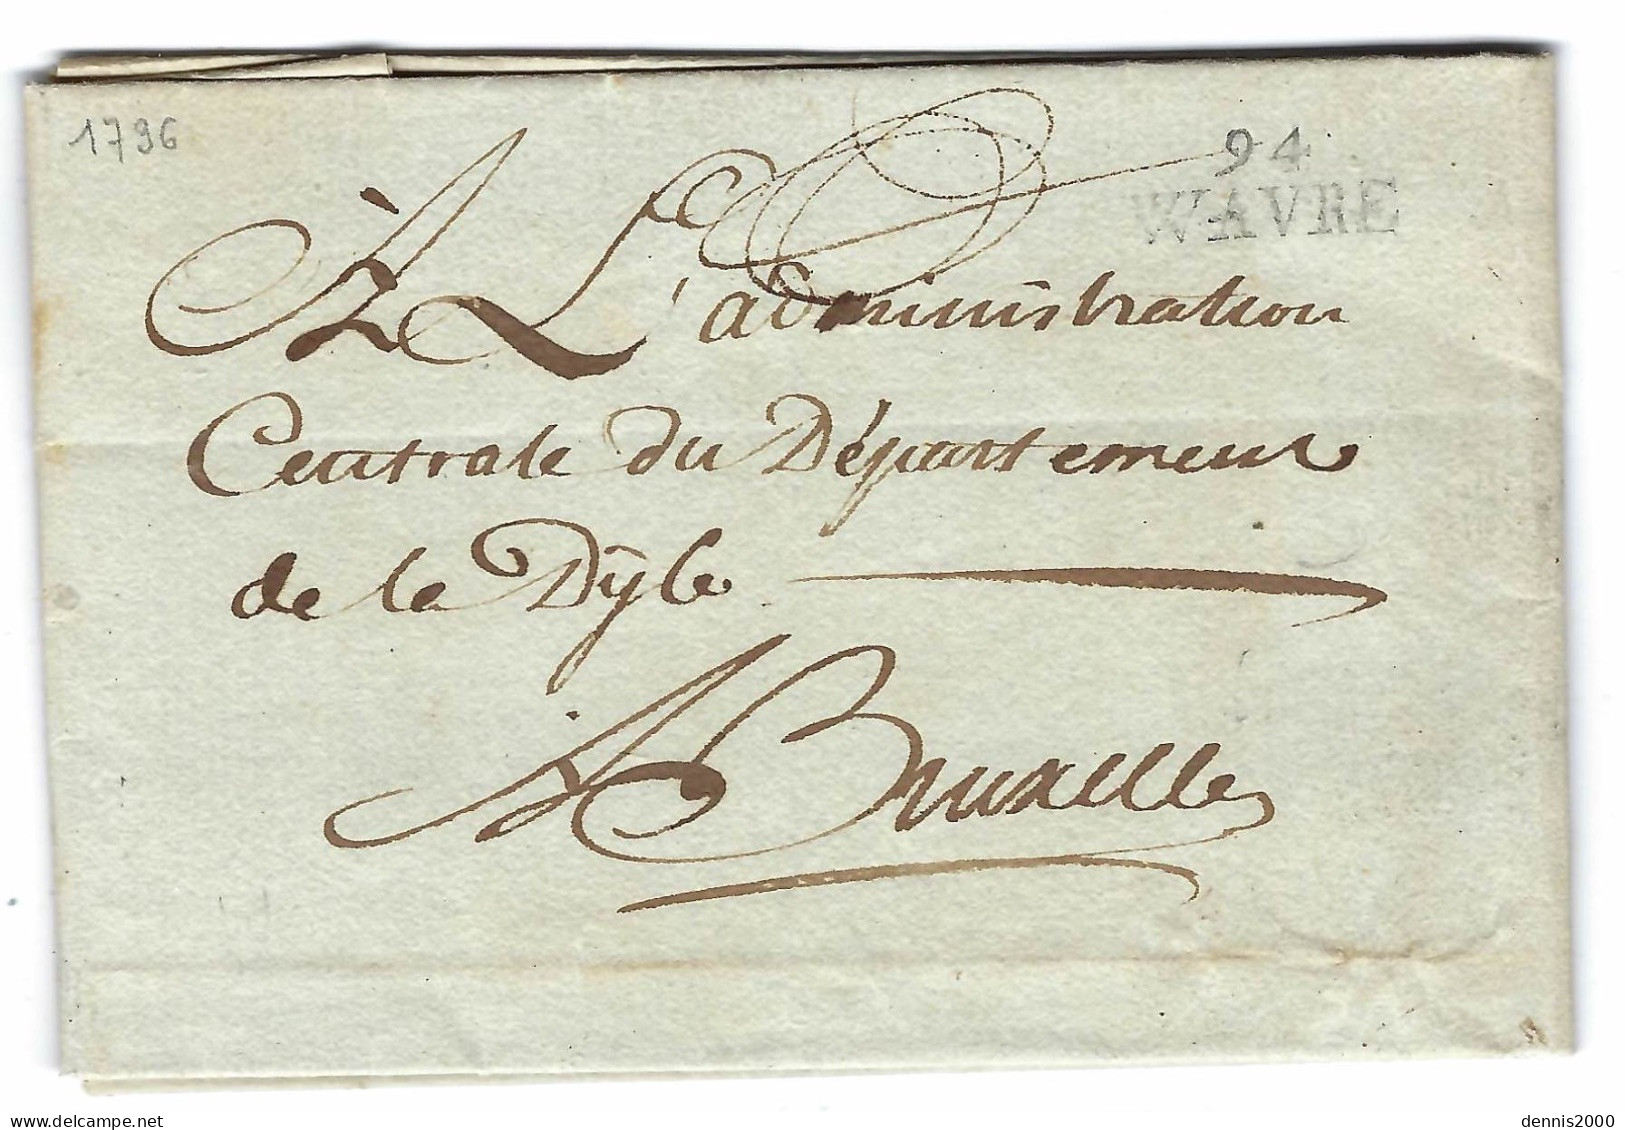 1796
94
WAVRE
À L'administration
Centrale du Département
de la Dyle
A Bruxelles
delcampe.net
dennis2000